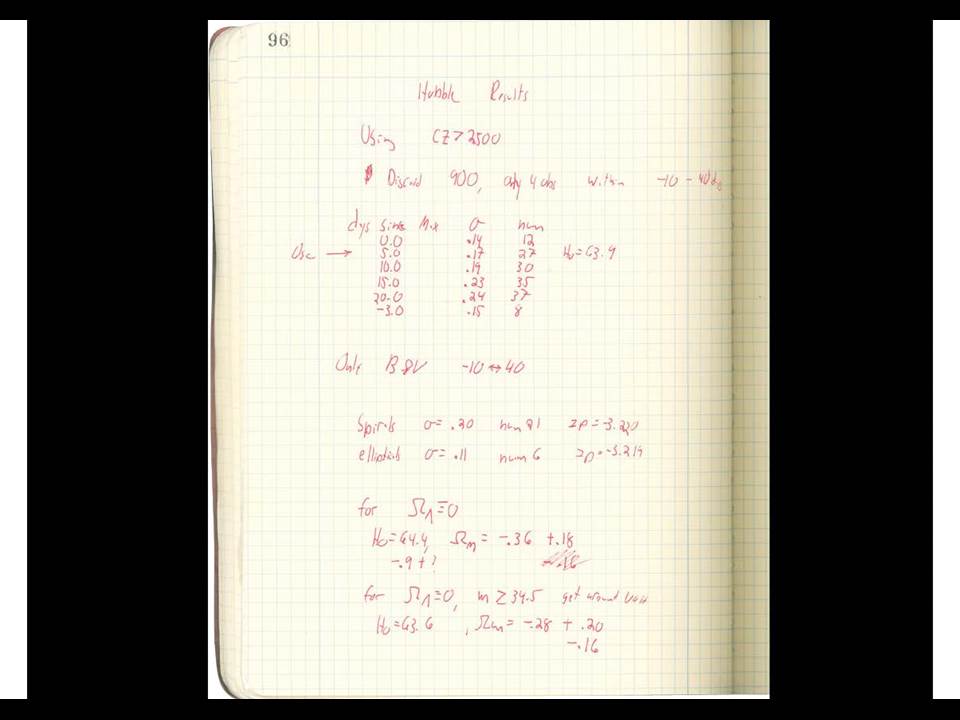 96
Hubble Results
Using CZ > 2500
Discard 900, only 4 obs within -10 - 40 days
dys since Max σ num
0.0 .14 12
Use → 5.0 .17 27 H₀ = 63.9
10.0 .19 30
15.0 .23 35
20.0 .24 37
-3.0 .15 8
Only B&V -10 ↔ 40
Spirals σ = .20 num 21 zp = -3.220
ellipticals σ = .11 num 6 zp = -3.219
for Ω_Λ ≡ 0
H₀ = 64.4, Ω_m = -.36 + .18
-.9 + ?
for Ω_Λ ≡ 0, m ≥ 34.5 get around
H₀ = 63.6, Ω_m = -.28 + .20
-.16